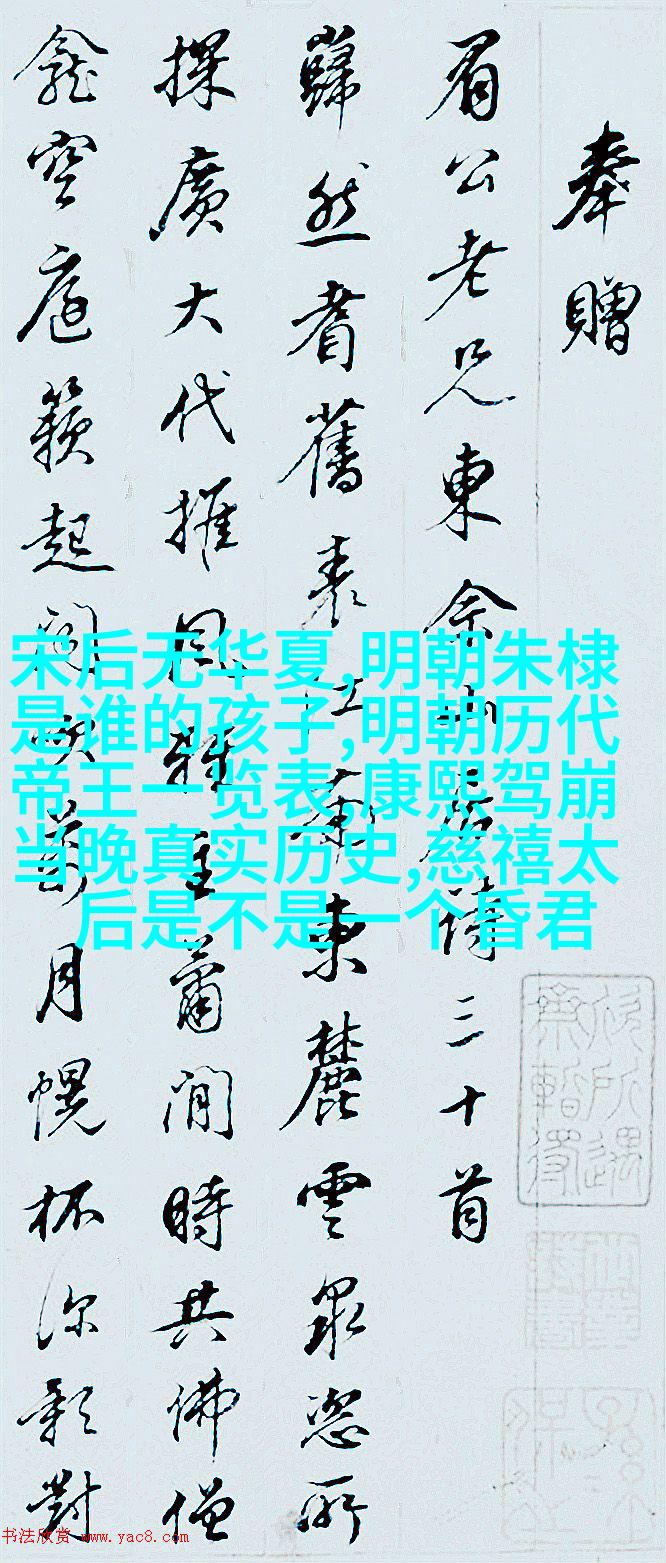 奉贈
眉公老兄東佘山居詩三十首
巋然耆舊表江南東麓雲泉恣所
探廣大代推風雅主蕭閒時共佛僧
龕空庭籟起閒吟
月幌杯深影對
宋后无华夏,明朝朱棣
是谁的孩子,明朝历代
帝王一览表,康熙驾崩
当晚真实历史,慈禧太
后是不是一个昏君
书法欣赏 www.yac8.com